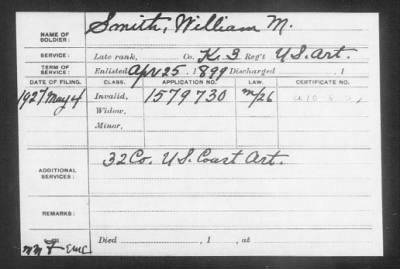 NAME OF SOLDIER: Smith, William M.
SERVICE: Late rank, Co. K. 3 Reg't U.S. Art.
TERM OF SERVICE: Enlisted Apr 25, 1899 Discharged , 1
DATE OF FILING. CLASS. APPLICATION NO. LAW. CERTIFICATE NO.
1927 May 4 Invalid, 1579730 m/26
Widow,
Minor,
ADDITIONAL SERVICES: 32 Co. U.S. Coast Art.
REMARKS:
Died , 1 , at